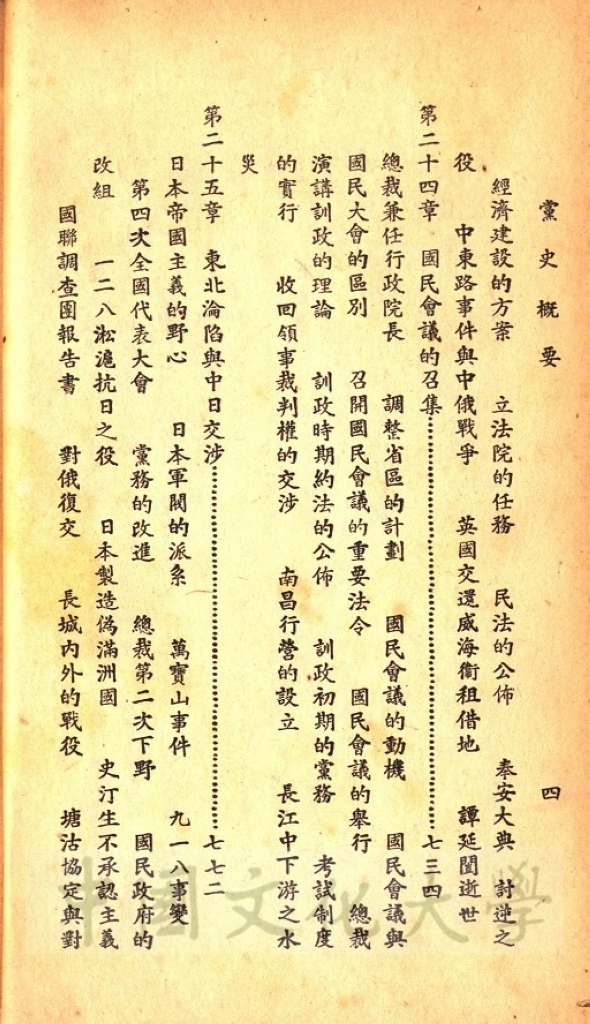 黨史概要　四
經濟建設的方案　立法院的任務　民法的公佈　奉安大典　討逆之
役　中東路事件與中俄戰爭　英國交還威海衞租借地　譚延闓逝世
第二十四章　國民會議的召集……七三四
總裁兼任行政院長　調整省區的計劃　國民會議的動機　國民會議與
國民大會的區別　召開國民會議的重要法令　國民會議的舉行　總裁
演講訓政的理論　訓政時期約法的公佈　訓政初期的黨務　考試制度
的實行　收回領事裁判權的交涉　南昌行營的設立　長江中下游之水
災
第二十五章　東北淪陷與中日交涉……七七二
日本帝國主義的野心　日本軍閥的派系　萬寶山事件　九一八事變
第四次全國代表大會　黨務的改進　總裁第二次下野　國民政府的
改組　一二八淞滬抗日之役　日本製造偽滿洲國　史汀生不承認主義
國聯調查團報告書　對俄復交　長城內外的戰役　塘沽協定與對
中國文化大學